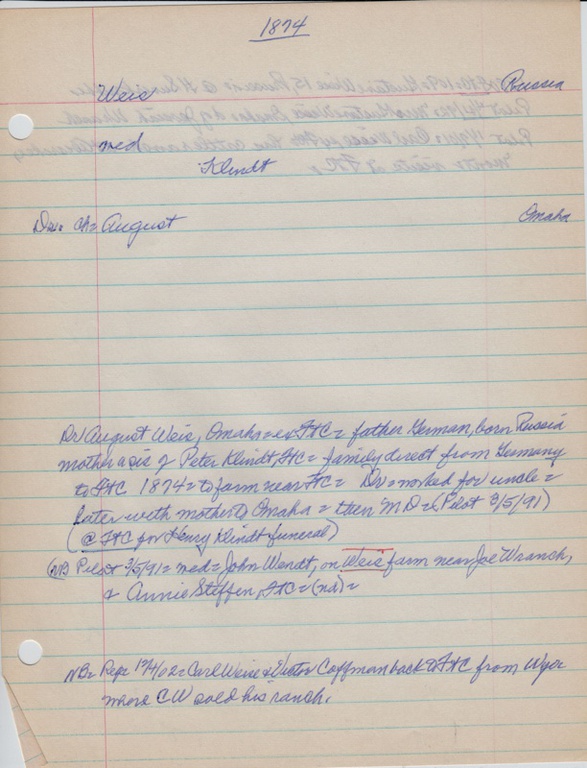 1874
Weis Russia
med
Klindt
Dr. ch = August Omaha
Dr August Weis, Omaha = ex FtC = father German, born Russia
mother a sis of Peter Klindt, FtC = family direct from Germany
to FtC 1874 = to farm near FtC = Dr = worked for uncle =
later with mother to Omaha = then MD = (Pilot 3/5/91)
(@ FtC for Henry Klindt funeral)
(NB Pilot 3/5/91 = med = John Wendt, on Weis farm near Joe Wranch,
& Annie Steffen, FtC = (nd) =
NB = Repr 12/4/02 = Carl Weise & Victor Coffman back to FtC from Wyo
where CW sold his ranch.